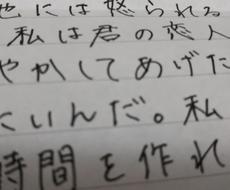 には怒られる
私は君の恋人
やかしてあげた
にいんだ。私
時間を作れ